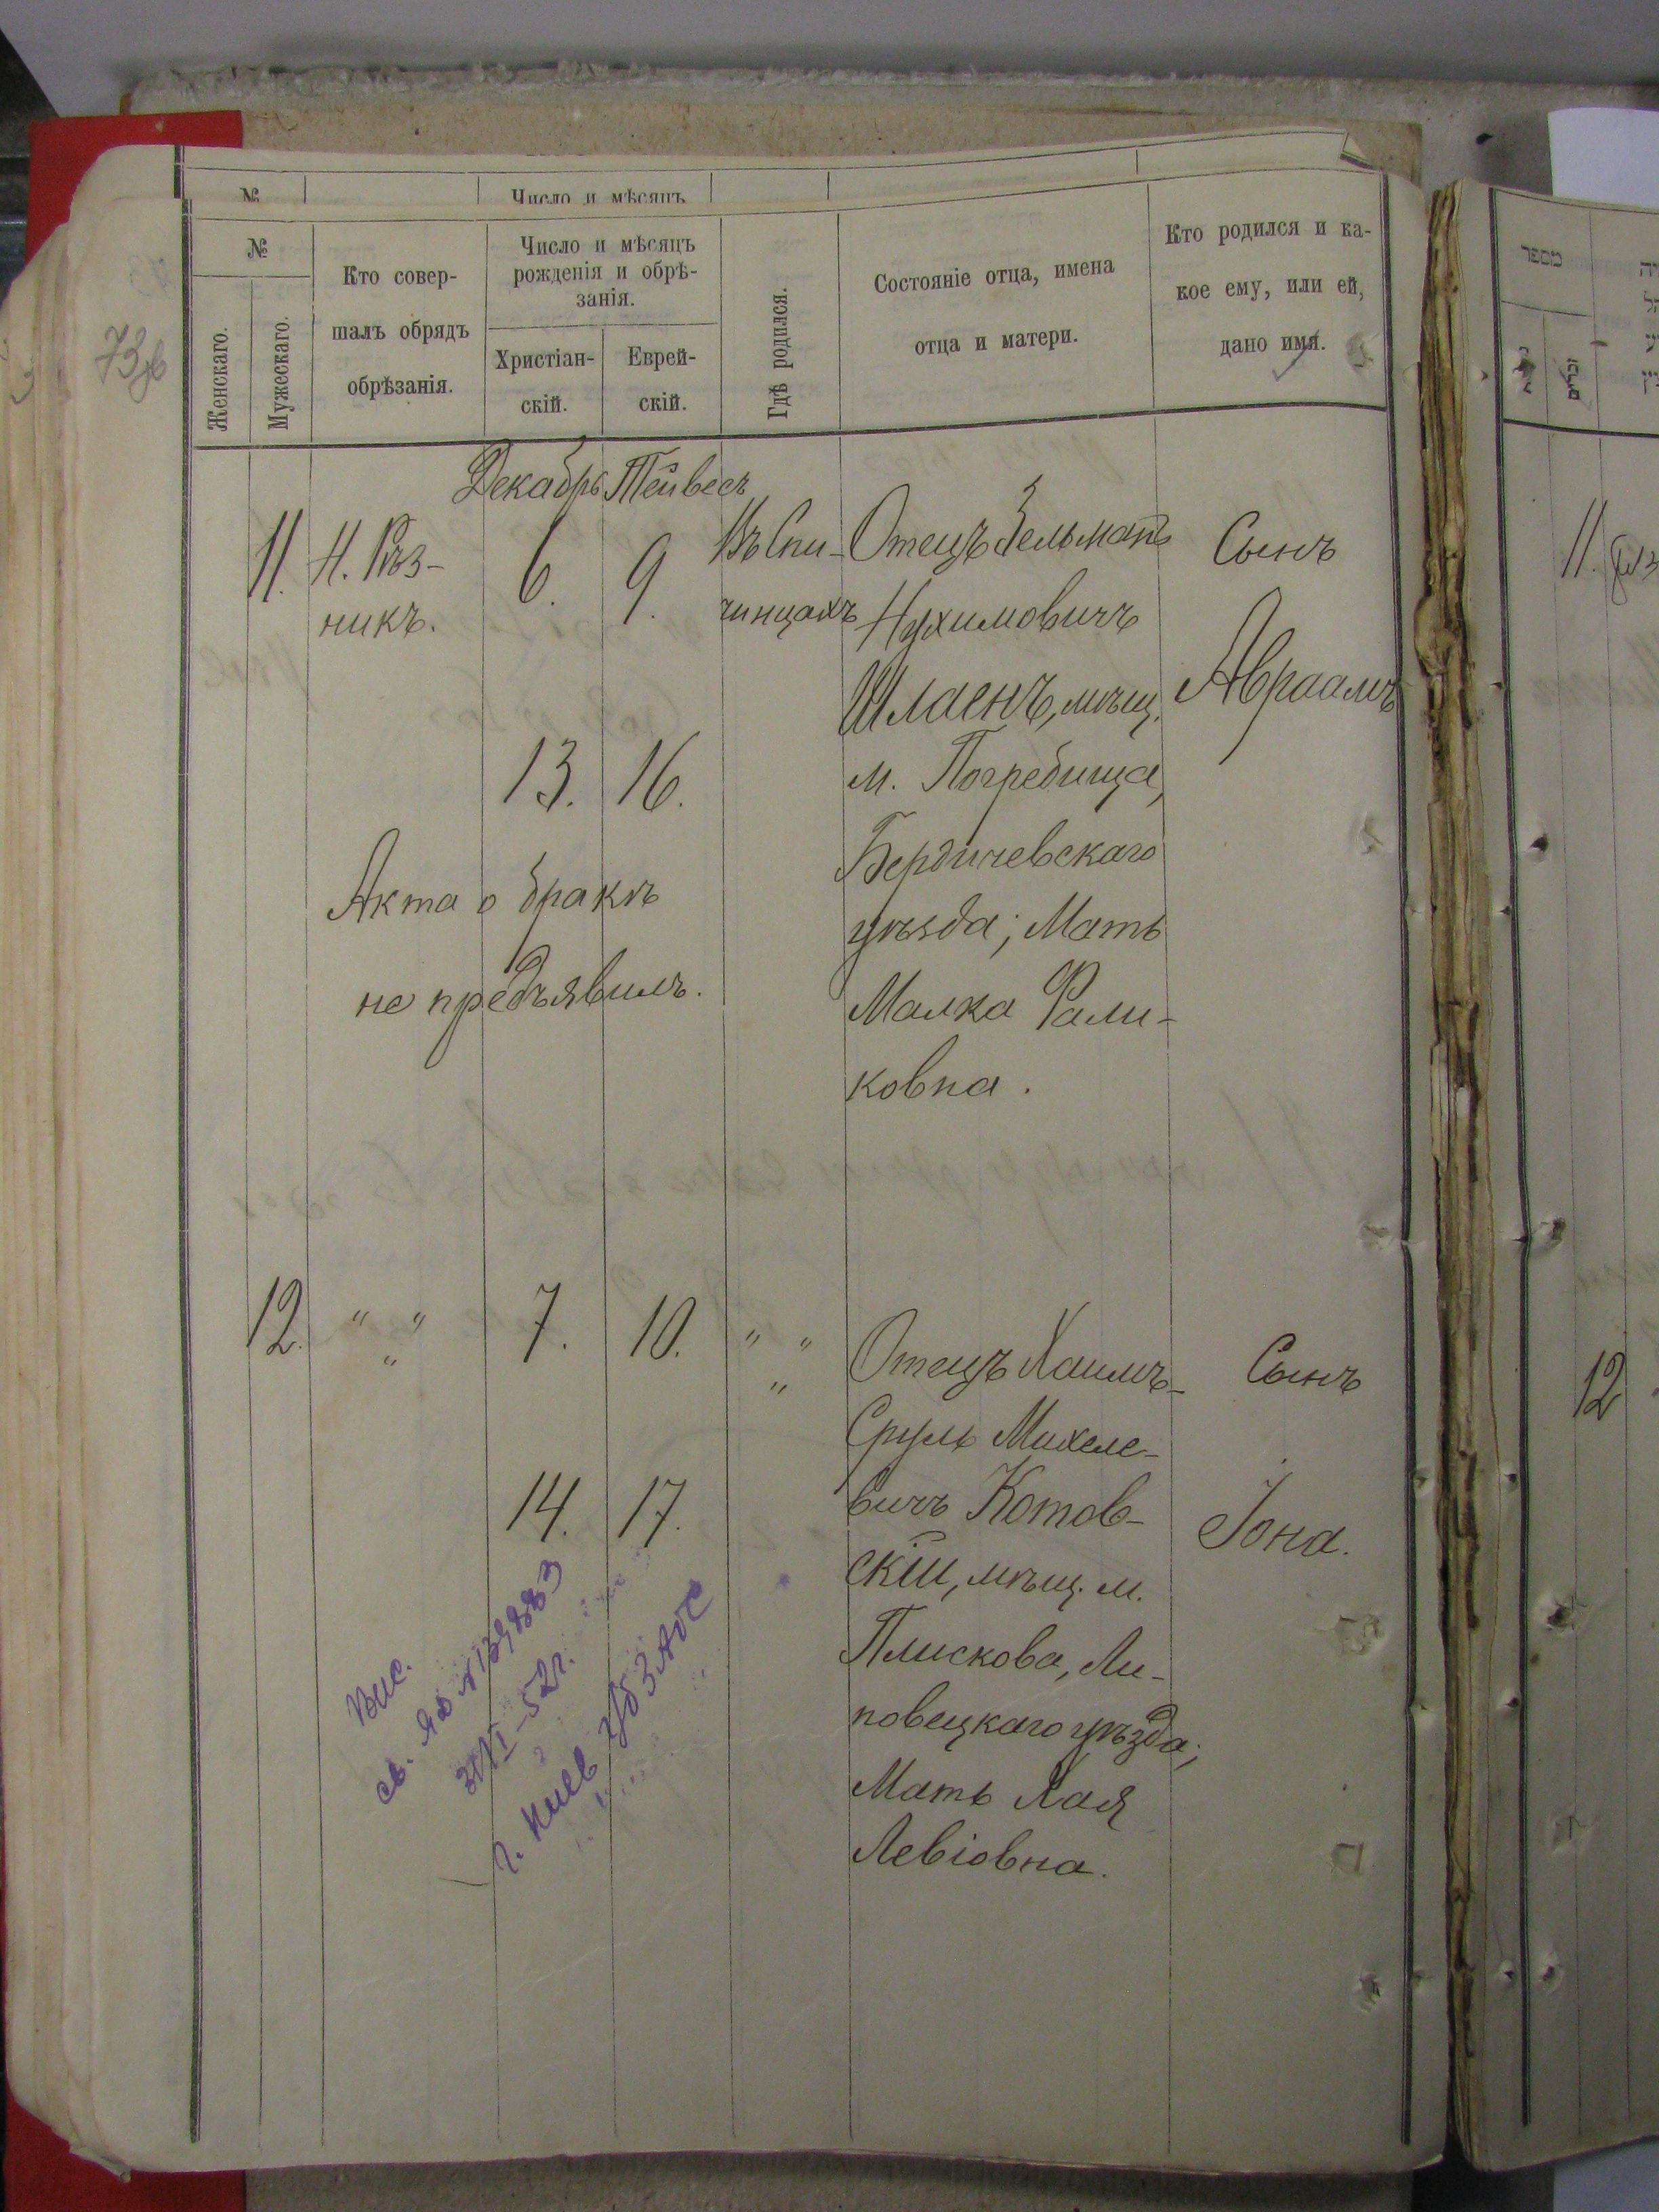 № Число и мѣсяцъ
№
Женскаго.
Мужескаго.
Кто совер-
шалъ обрядъ
обрѣзанія.
Число и мѣсяцъ
рожденія и обрѣ-
занія.
Христіан-
скій.
Еврей-
скій.
Гдѣ родился.
Состояніе отца, имена
отца и матери.
Кто родился и ка-
кое ему, или ей,
дано имя.
Декабрь Тейвесъ
11. Н. Рѣз-
никъ.
6. 9.
Въ Спи-
чинцахъ
Отецъ Зельманъ
Нухимовичъ
Шлаенъ, мѣщ.
м. Погребища,
Бердичевскаго
уѣзда; Мать
Малка Фали-
ковна.
Сынъ
Авраамъ
13. 16.
Акта о бракѣ
не предъявилъ.
12. " " "
7. 10. " " "
Отецъ Хаимъ-
Сруль Михеле-
вичъ Котов-
скій, мѣщ. м.
Плискова, Ли-
повецкаго уѣзда;
Мать Хая
Левіовна.
Сынъ
Іона.
14. 17.
Выс.
г. Киев
מספר
11.
12